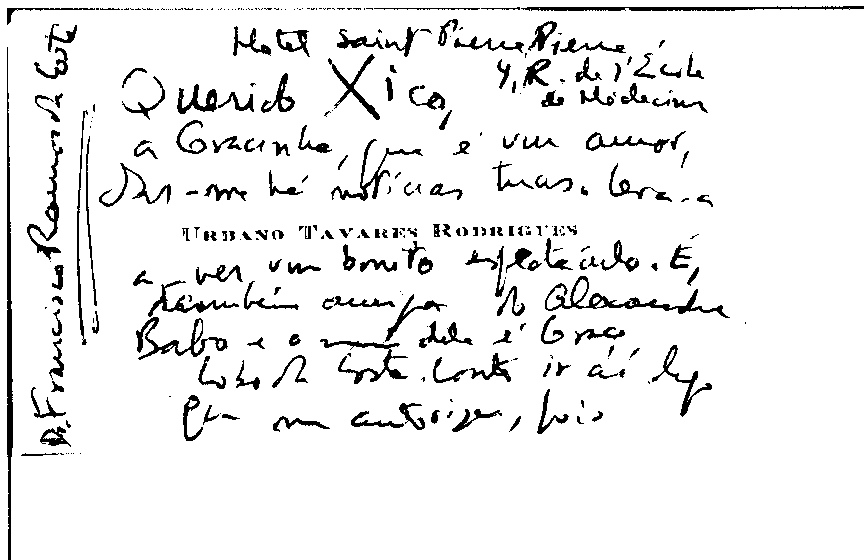 Hotel Saint Pierre Pierre,
4, R. de l'École
de Médecine
Querido Xico,
a Gracinha, que é um amor,
deu-me há notícias tuas. Leva-a
URBANO TAVARES RODRIGUES
a ver um bonito espetáculo. É,
também amiga do Alexandre
Babo e o nome dela é Graça
Lobo da Costa. Conto ir aí logo
que me autorizem, pois
Dr. Francisco Ramos da Costa